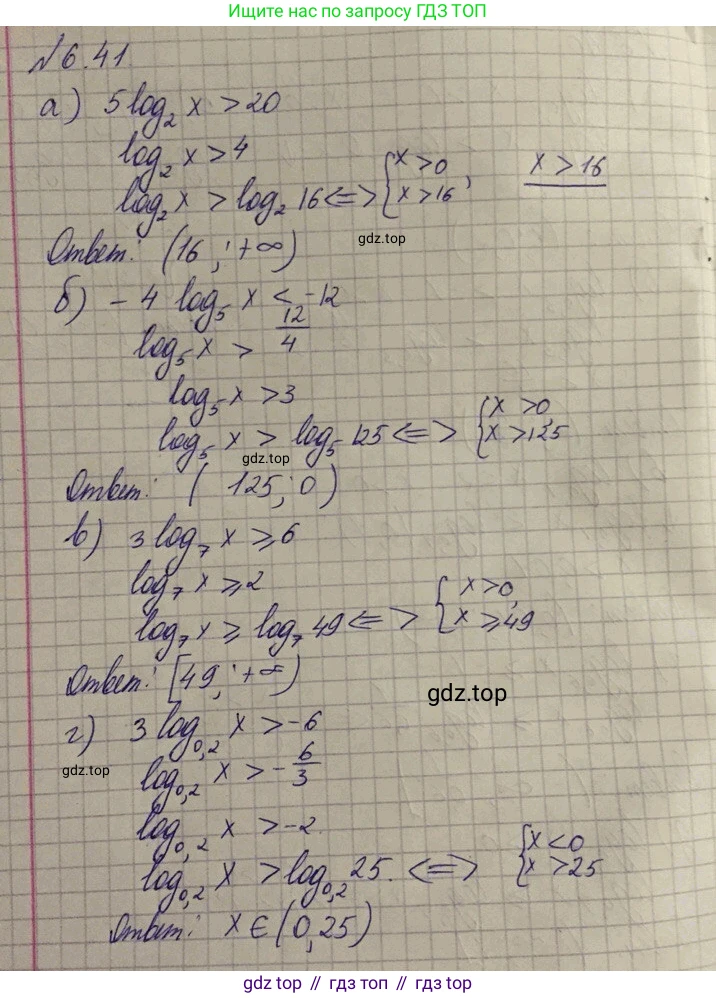 решачка по запросу ГДЗ ТОП
№6.41.
а) 5 log₂ x > 20
log₂ x > 4
log₂ x > log₂ 16 <=> { x > 0, x > 16
x > 16
gdz.top
Ответ: (16 ; +∞)
б) - 4 log₅ x < -12
log₅ x > 12/4
log₅ x > 3
log₅ x > log₅ 125 <=> { x > 0, x > 125
gdz.top
Ответ: ( 125 ; 0 )
в) 3 log₇ x ⩾ 6
log₇ x ⩾ 2
log₇ x ⩾ log₇ 49 <=> { x > 0, x ⩾ 49
Ответ: [49 ; +∞)
gdz.top
г) 3 log₀,₂ x > -6
gdz.top
log₀,₂ x > - 6/3
log₀,₂ x > -2
log₀,₂ x > log₀,₂ 25. <=> { x < 0 x > 25
Ответ: x ∈ (0,25)
gdz.top // гдз топ // gdz.top